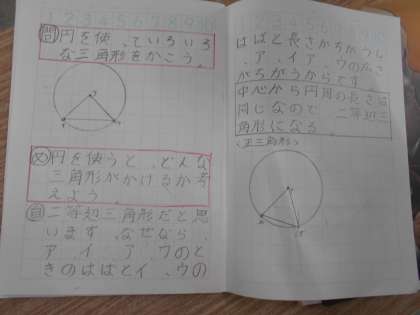 問 円を使っていろいろ
な三角形をかこう。
ア
イ ウ
め 円を使うと、どんな
三角形がかけるか考
えよう。
自 二等辺三角形だと思
います。なぜなら、
ア、イ、ア、ウのと
きのはばとイ、ウの
はばと長さがちがうし
、ア、イ、ア、ウの広さ
がちがうからです。
中心から円周の長さは
同じなので、二等辺三
角形になる。
(正三角形)
ア
イ ウ